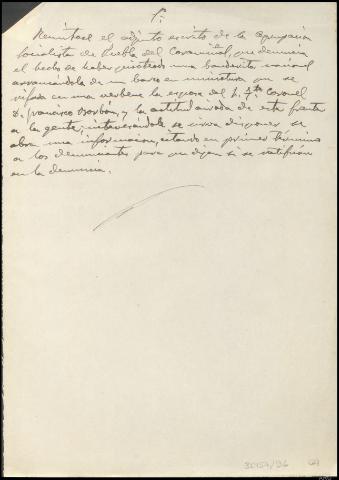 Remítase el adjunto escrito de la agrupación
socialista de Puebla del Caraminal, que denuncia
el hecho de haber una banderita nacional
arrancándola de un barco en miniatura que se
rifaba en una verbena la esposa del Coronel
D. Francisco Borbón, y la actitud airada de esta frente
a la gente, se sirva disponer se
abra una información, citando en primer término
a los denunciantes para que digan si se ratifican
en la denuncia.
30454/96